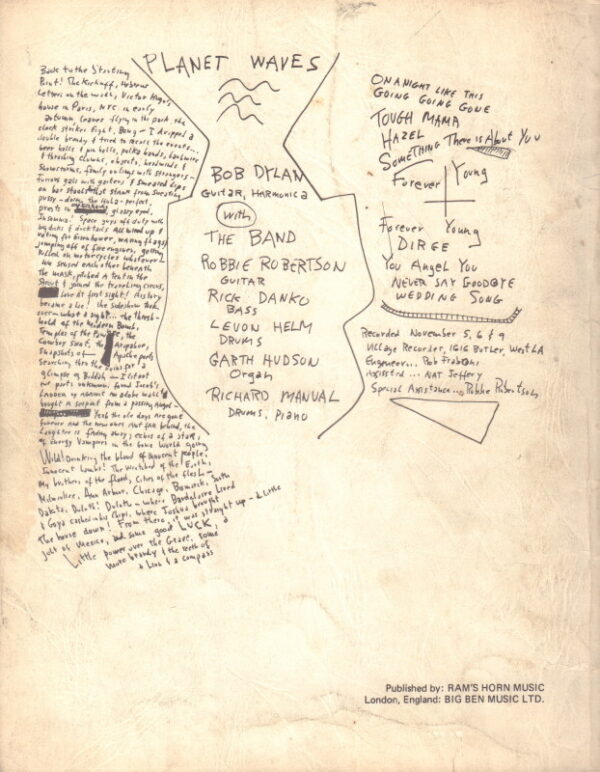 Back to the Starting
Point! The Kickoff, Hebrew
Letters on the walls, Victor Hugo's
house in Paris, NYC in early
Autumn, leaves flying in the park, the
clock strikes Eight, Bong - I dropped a
double brandy & tried to recall the events...
beer halls & pin balls, polka bands, barbwire
& thrashing clowns, objects, headwinds &
Snowstorms, family outings with strangers -
Furious gals with garters & smeared lips
on bar stools that stank from sweating
pussy - doing the Hula - perfect,
priests in glassy eyed,
Insomnia! Space guys off duty with
big dicks & ducktails All wired up &
voting for Eisenhower, waving flags &
jumping off of fire engines, getting
killed on motorcycles whatever -
We sensed each other beneath
the mask, pitched a tent in the
Street & joined the traveling circus,
love at first sight! History
became a lie! the sideshow took
over - what a sight... the thresh-
hold of the Modern Bomb,
Temples of the the
Cowboy Saint, the Arapahoe,
Snapshots of Apache poets
Searching thru the ruins for a
glimpse of Buddah - I lit out
for parts unknown, found Jacob's
Ladder up against an adobe wall &
bought a serpent from a passing Angel -
Yeah the ole days are gone
forever and the new ones aint far behind, the
Laughter is fading away, echos of a star,
of Energy Vampires in the Gone World going
Wild! Drinking the blood of innocent people,
Innocent Lambs! The Wretched of the Earth,
My brothers of the flood, Cities of the flesh -
Milwaukee, Ann Arbor, Chicago, Bismarck, South
Dakota, Duluth! Duluth - where Baudelaire Lived
& Goya cashed in his Chips, where Joshua brought
The house down! From there, it was straight up - a Little
jolt of Mexico, and some good LUCK, a
Little power over the Grave, some
more brandy & the teeth of
a Lion & a compass
PLANET WAVES
BOB DYLAN
GUITAR, HARMONICA
with
THE BAND
ROBBIE ROBERTSON
GUITAR
RICK DANKO
BASS
LEVON HELM
DRUMS
GARTH HUDSON
Organ
RICHARD MANUAL
DRUMS, PIANO
ON A NIGHT LIKE THIS
GOING GOING GONE
TOUGH MAMA
HAZEL
SOMETHING There is About You
Forever Young
Forever Young
DIRGE
You Angel You
NEVER SAY GOODBYE
WEDDING SONG
Recorded November 5, 6 & 9
Village Recorder, 1616 Butler, West LA
Engineer... Rob Fraboni
Assisted... NAT Jeffery
Special Assistance... Robbie Robertson
Published by: RAM'S HORN MUSIC
London, England: BIG BEN MUSIC LTD.